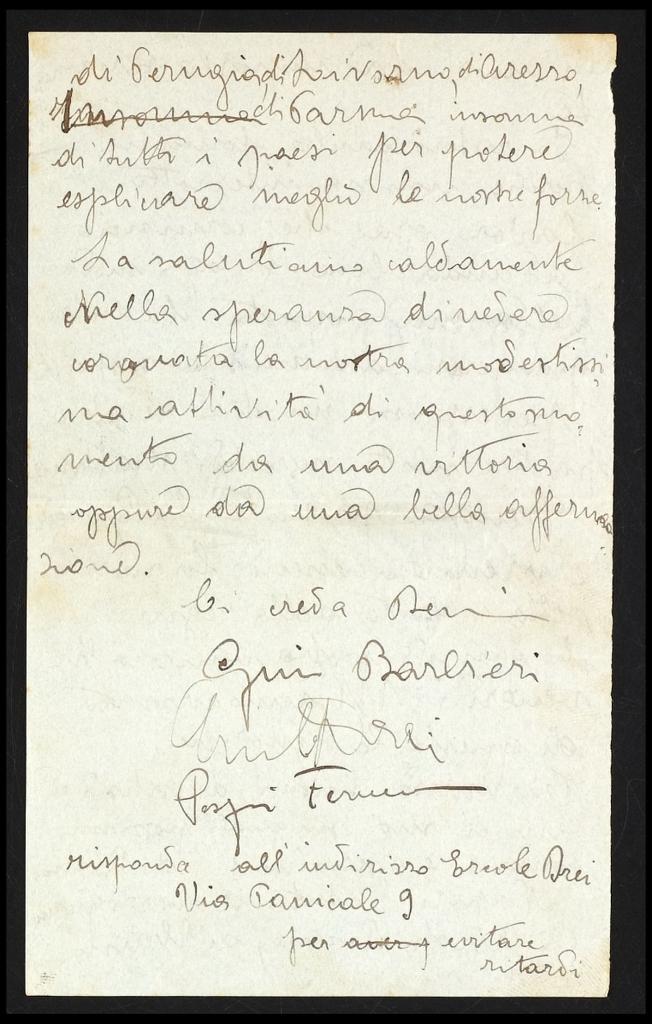 di Perugia, di Livorno, di Arezzo,
Insomma di Parma, insomma
di tutti i paesi per potere
esplicare meglio le nostre forze.
La salutiamo caldamente
Nella speranza di vedere
coronata la nostra modestissi
ma attività di questo mo
mento da una vittoria
oppure da una bella afferma
zione.
Ci creda
Barbieri
Drei
risponda all'indirizzo Ercole Drei
Via Panicale 9
per aver evitare
ritardi